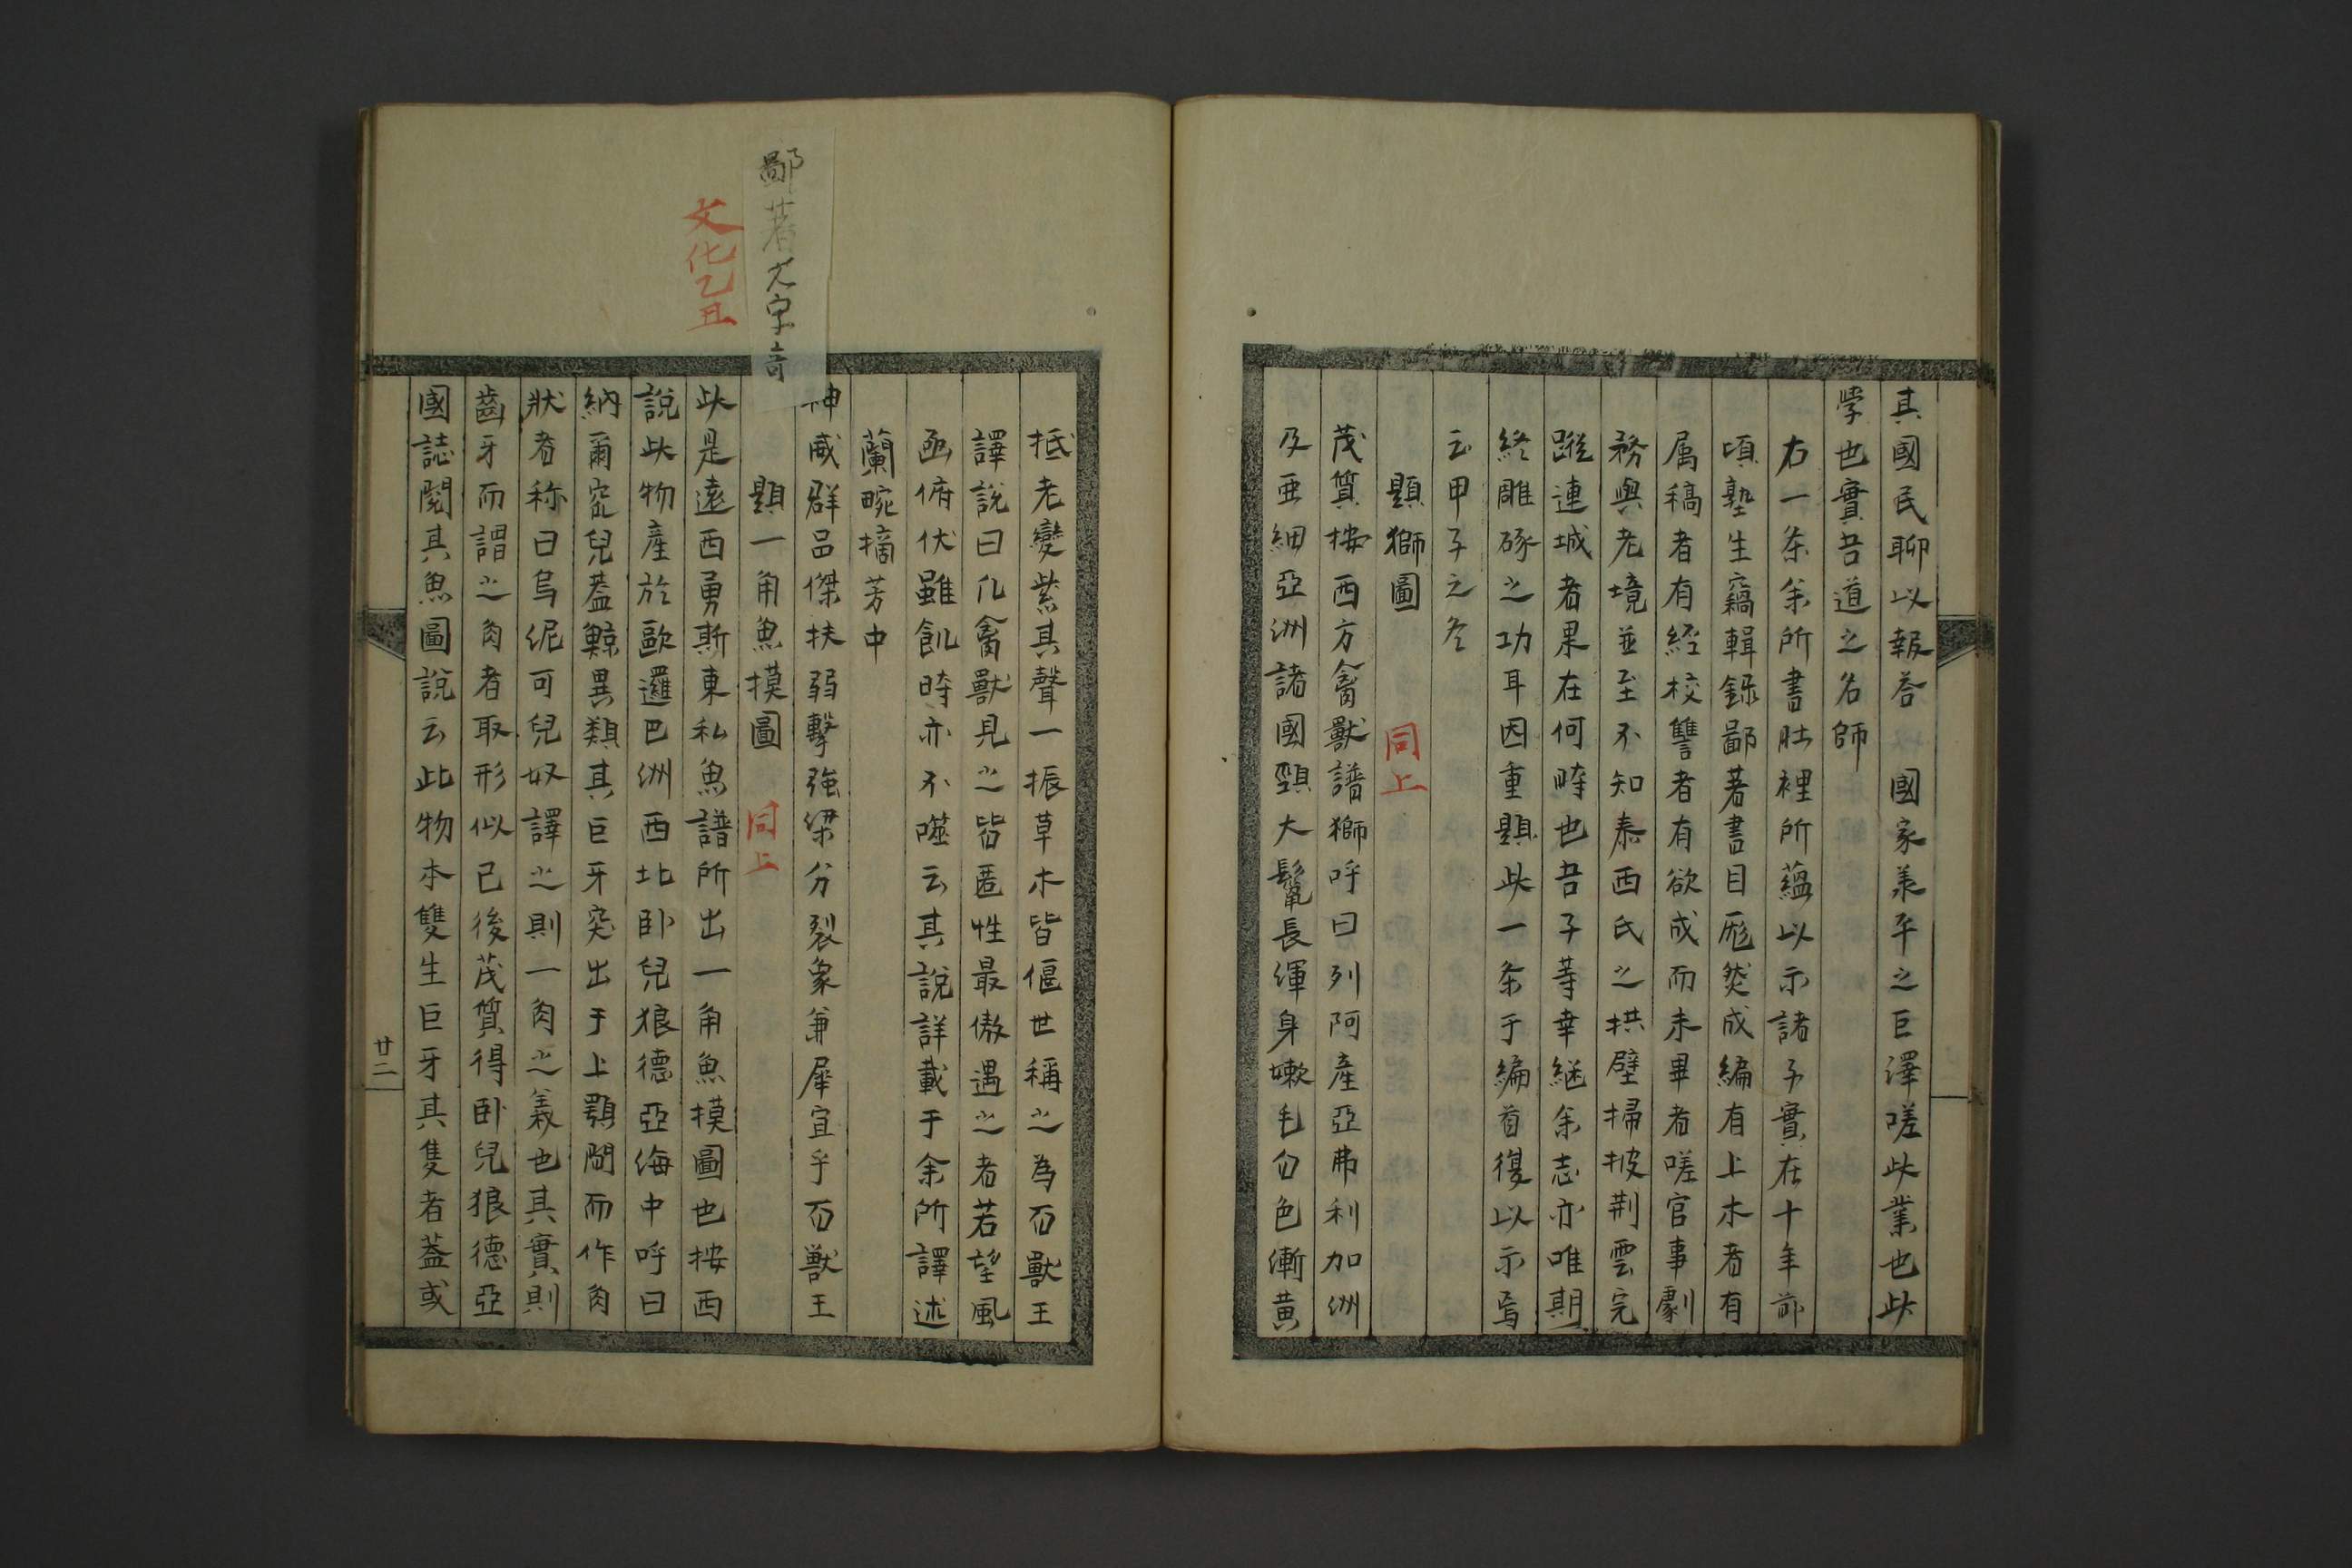 其國民聊以報荅　國家羕平之巨澤嗟此業也此
学也實吾道之名師
右一条余所書肚裡所蘊以示諸子實在十年前
頃塾生竊輯録鄙著書目厖然成編有上木者有
属稿者有経校讐者有欲成而未畢者嗟官事劇
務與老境並至不知泰西氏之拱璧掃披荆雲完
蹤連城者果在何時也吾子等幸継余志亦唯期
終雕琢之功耳因重題此一条于編首復以示焉
云甲子之冬
題獅圖　同上
茂質按西方禽獸譜獅呼曰列阿產亞弗利加洲
及亜細亞洲諸國頸大鬣長渾身嫩毛白色漸黄
抵老變紫其聲一振草木皆偃世稱之為百獸王
譯說曰凡禽獸見之皆匿性最傲遇之者若望風
亟俯伏雖飢時亦不噬云其說詳載于余所譯述
蘭畹摘芳中
神威群品傑扶弱擊強梁分裂象兼犀宜乎百獸王
鄙著
文化乙丑
題一角魚摸圖　同上
此是遠西勇斯東私魚譜所出一角魚摸圖也按西
說此物產於歐邏巴洲西北卧兒狼德亞海中呼曰
納爾窕兒蓋鯨異類其巨牙突出于上顎間而作角
狀者称曰烏伲可兒奴譯之則一角之義也其實則
齒牙而謂之角者取形似已後茂質得卧兒狼德亞
國誌閱其魚圖說云此物本雙生巨牙其隻者蓋或
廿二